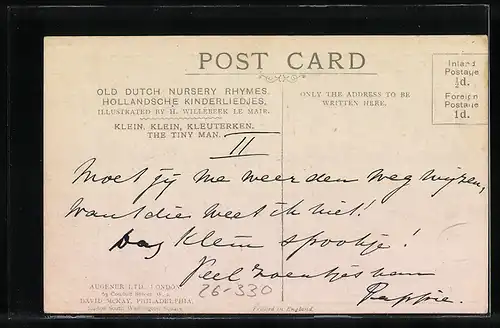 POST CARD
OLD DUTCH NURSERY RHYMES.
HOLLANDSCHE KINDERLIEDJES,
ILLUSTRATED BY H. WILLEBEEK LE MAIR.
KLEIN, KLEIN, KLEUTERKEN.
THE TINY MAN.
ONLY THE ADDRESS TO BE
WRITTEN HERE.
Inland
Postage
½d.
Foreign
Postage
1d.
II
Moet jij me weer den weg wijzen,
want die weet ik niet!
Dag klein spookje!
Veel zoentjes van
Pappie.
26-330
AUGENER LTD. LONDON
DAVID McKAY, PHILADELPHIA,
Printed in England.